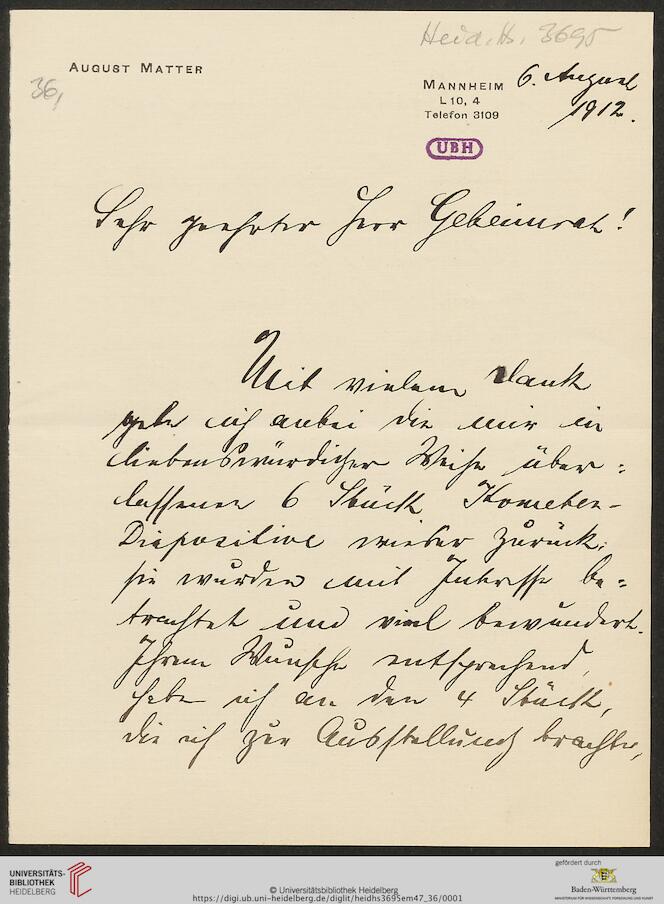 Heid. Hs. 3695
36,
AUGUST MATTER
MANNHEIM
L 10, 4
Telefon 3109
6. August
1912.
UBH
Sehr geehrter Herr Geheimrat!
Mit vielem Dank
gebe ich anbei die mir in
liebenswürdiger Weise über=
lassenen 6 Stück Kometen-
Diapositive wieder zurück;
sie wurden mit Interesse be=
trachtet und viel bewundert.
Ihrem Wunsche entsprechend,
habe ich an den 4 Stück,
die ich zur Ausstellung brachte,
UNIVERSITÄTS-
BIBLIOTHEK
HEIDELBERG
© Universitätsbibliothek Heidelberg
https://digi.ub.uni-heidelberg.de/diglit/heidhs3695em47_36/0001
gefördert durch
Baden-Württemberg
MINISTERIUM FÜR WISSENSCHAFT, FORSCHUNG UND KUNST